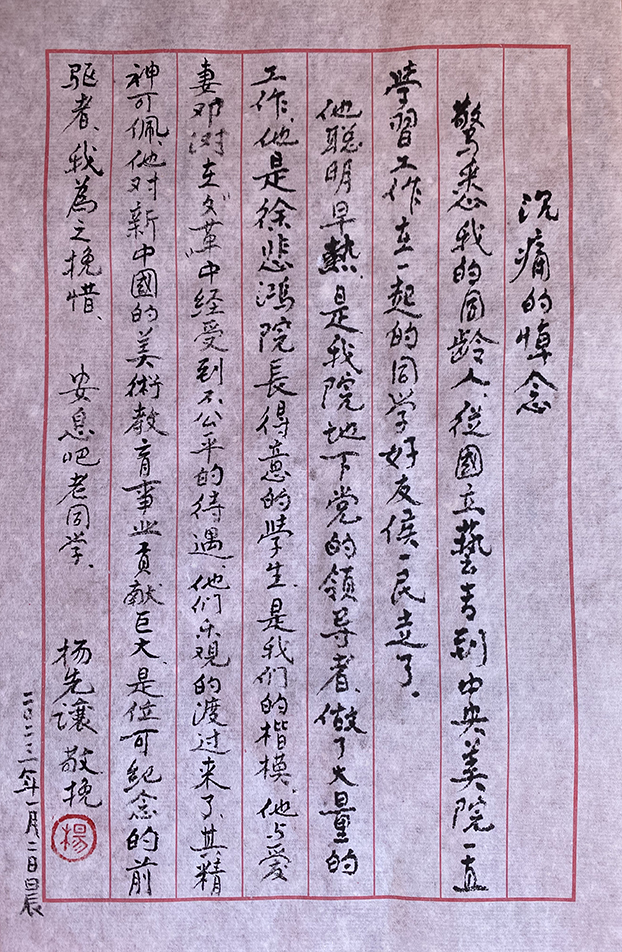 沉痛的悼念
驚悉我的同齡人、從國立藝專到中央美院一直
學習工作在一起的同学好友侯一民走了.
他聪明早熱、是我院地下党的領导者、做了大量的
工作、他是徐悲鴻院長得意的學生、是我们的楷模、他与爱
妻邓澍在文革中经受到不公平的待遇、他们乐观的渡过来了、其精
神可佩、他对新中國的美術教育事业貢献巨大、是位可紀念的前
驱者、我為之挽惜、 安息吧老同学、
杨先讓 敬挽
楊
二〇二三年一月二日